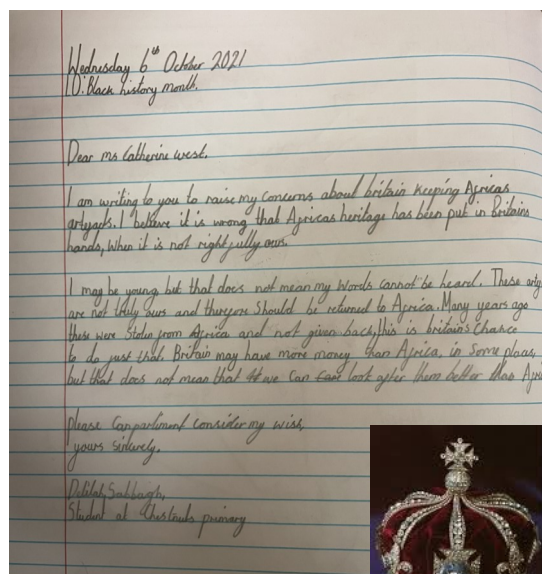 Wednesday 6th October 2021
LO: Black history month.
Dear Ms Catherine West,
I am writing to you to raise my concerns about britain keeping Africas
artyfacts. I believe it is wrong that Africas heritage has been put in Britains
hands, When it is not rightfully ours.
I may be young but that does not mean my words cannot be heard. These arty
are not truly ours and therefore should be returned to Africa. Many years ago
these were stolen from Africa and not given back, this is britain's chance
to do just that. Britain may have more money than Africa, in some places,
but that does not mean that we can look after them better than Afri
Please can parliment consider my wish,
yours sincerely,
Delilah Sabbagh,
Student at Chestnuts primary